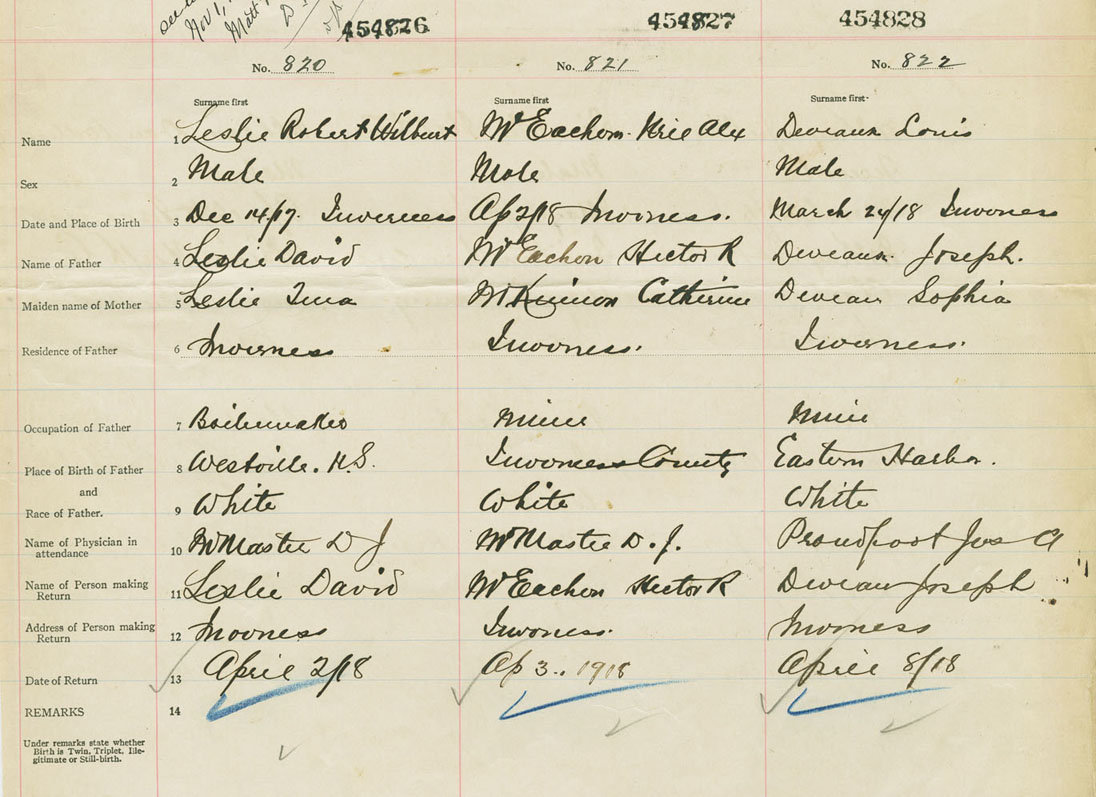 Nov 1,
454826 454827 454828
No. 820 No. 821 No. 822
Surname first Surname first Surname first
Name 1 Leslie Robert Wilbert McEachern Alex Deveaux Louis
Sex 2 Male Male Male
Date and Place of Birth 3 Dec 14/17. Inverness Ap 2/18 Inverness. March 24/18 Inverness
Name of Father 4 Leslie David McEachern Hector R Deveaux Joseph.
Maiden name of Mother 5 Leslie McKinnon Catherine Deveau Sophia
Residence of Father 6 Inverness Inverness. Inverness.
Occupation of Father 7 Boilermaker Miner Miner
Place of Birth of Father 8 Westville. N.S. Inverness County Eastern Harbor.
and
Race of Father. 9 White White White
Name of Physician in
attendance 10 McMaster D J McMaster D. J. Proudfoot Jos A
Name of Person making
Return 11 Leslie David McEachern Hector R Deveau Joseph
Address of Person making
Return 12 Inverness Inverness. Inverness
Date of Return 13 April 2/18 Ap 3.. 1918 April 8/18
REMARKS 14
Under remarks state whether
Birth is Twin, Triplet, Ille-
gitimate or Still-birth.